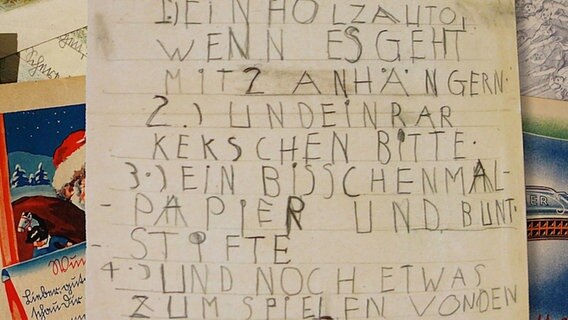 1) EIN HOLZAUTO,
WENN ES GEHT
MIT 2 ANHÄNGERN.
2.) UND EIN RAR
KEKSCHEN BITTE.
3.) EIN BISSCHEN MAL-
- PAPIER UND BUNT-
- STIFTE
4.) UND NOCH ETWAS
ZUM SPIELEN VON DEN
Lieber, gut
schau dir